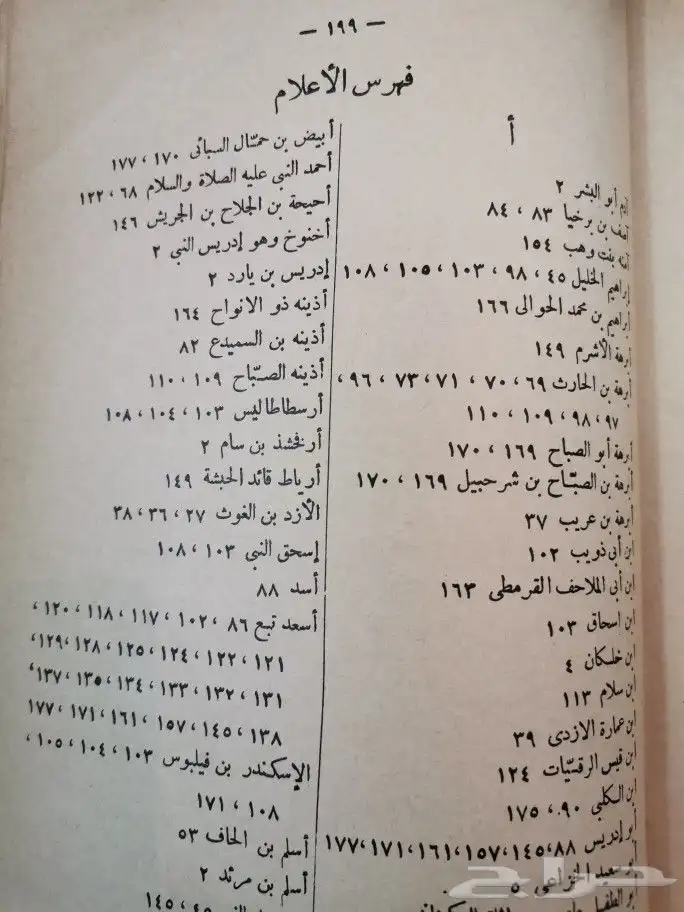 — ١٩٩ —
فهرس الأعلام
أ
آدم أبو البشر ٢
آصف بن برخيا ٨٣ ، ٨٤
آمنه بنت وهب ١٥٤
إبراهيم الخليل ٤٥ ، ٩٨ ، ١٠٣ ، ١٠٥ ، ١٠٨
إبراهيم بن محمد الحوالى ١٦٦
أبرهة الأشرم ١٤٩
أبرهة بن الحارث ٦٩ ، ٧٠ ، ٧١ ، ٧٣ ، ٩٦ ،
٩٧ ، ٩٨ ، ١٠٩ ، ١١٠
أبرهة أبو الصباح ١٦٩ ، ١٧٠
أبرهة بن الصبّاح بن شرحبيل ١٦٩ ، ١٧٠
أبرهة بن عريب ٣٧
ابن أبى ذويب ١٠٢
ابن أبى الملاحف القرمطى ١٦٣
ابن اسحاق ١٠٣
ابن خلكان ٤
ابن سلام ١١٣
ابن عمارة الازدى ٣٩
ابن قيس الرقسيّات ١٢٤
ابن الكلبي ٩٠ ، ١٧٥
أبو إدريس ٨٨ ، ١٤٥ ، ١٥٧ ، ١٦١ ، ١٧١ ، ١٧٧
أبو سعيد الخزاعى ٥
أبو الطفيل
أبيض بن حمّال السبائى ١٧٠ ، ١٧٧
أحمد النبي عليه الصلاة والسلام ٦٨ ، ١٢٢
أحيحة بن الجلاح بن الجريش ١٤٦
أخنوخ وهو إدريس النبي ٢
إدريس بن يارد ٢
أذينه ذو الانواح ١٦٤
أذينه بن السميدع ٨٢
أذينه الصبّاح ١٠٩ ، ١١٠
أرسطاطاليس ١٠٣ ، ١٠٤ ، ١٠٨
أرفخشذ بن سام ٢
أرياط قائد الحبشة ١٤٩
الأزد بن الغوث ٢٧ ، ٣٦ ، ٣٨
إسحق النبي ١٠٣ ، ١٠٨
أسد ٨٨
أسعد تبع ٨٦ ، ١٠٢ ، ١١٧ ، ١١٨ ، ١٢٠ ،
١٢١ ، ١٢٢ ، ١٢٤ ، ١٢٥ ، ١٢٨ ، ١٢٩ ،
١٣١ ، ١٣٢ ، ١٣٣ ، ١٣٤ ، ١٣٥ ، ١٣٧ ،
١٣٨ ، ١٤٥ ، ١٥٧ ، ١٦١ ، ١٧١ ، ١٧٧
الإسكندر بن فيلبوس ١٠٣ ، ١٠٤ ، ١٠٥ ،
١٠٨ ، ١٧١
أسلم بن الحاف ٥٣
أسلم بن مرثد ٢
حراج